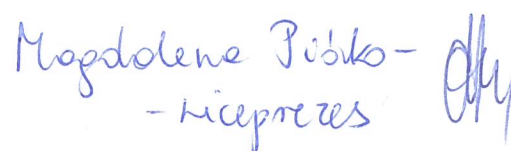 Magdalena Piórko -
- wiceprezes